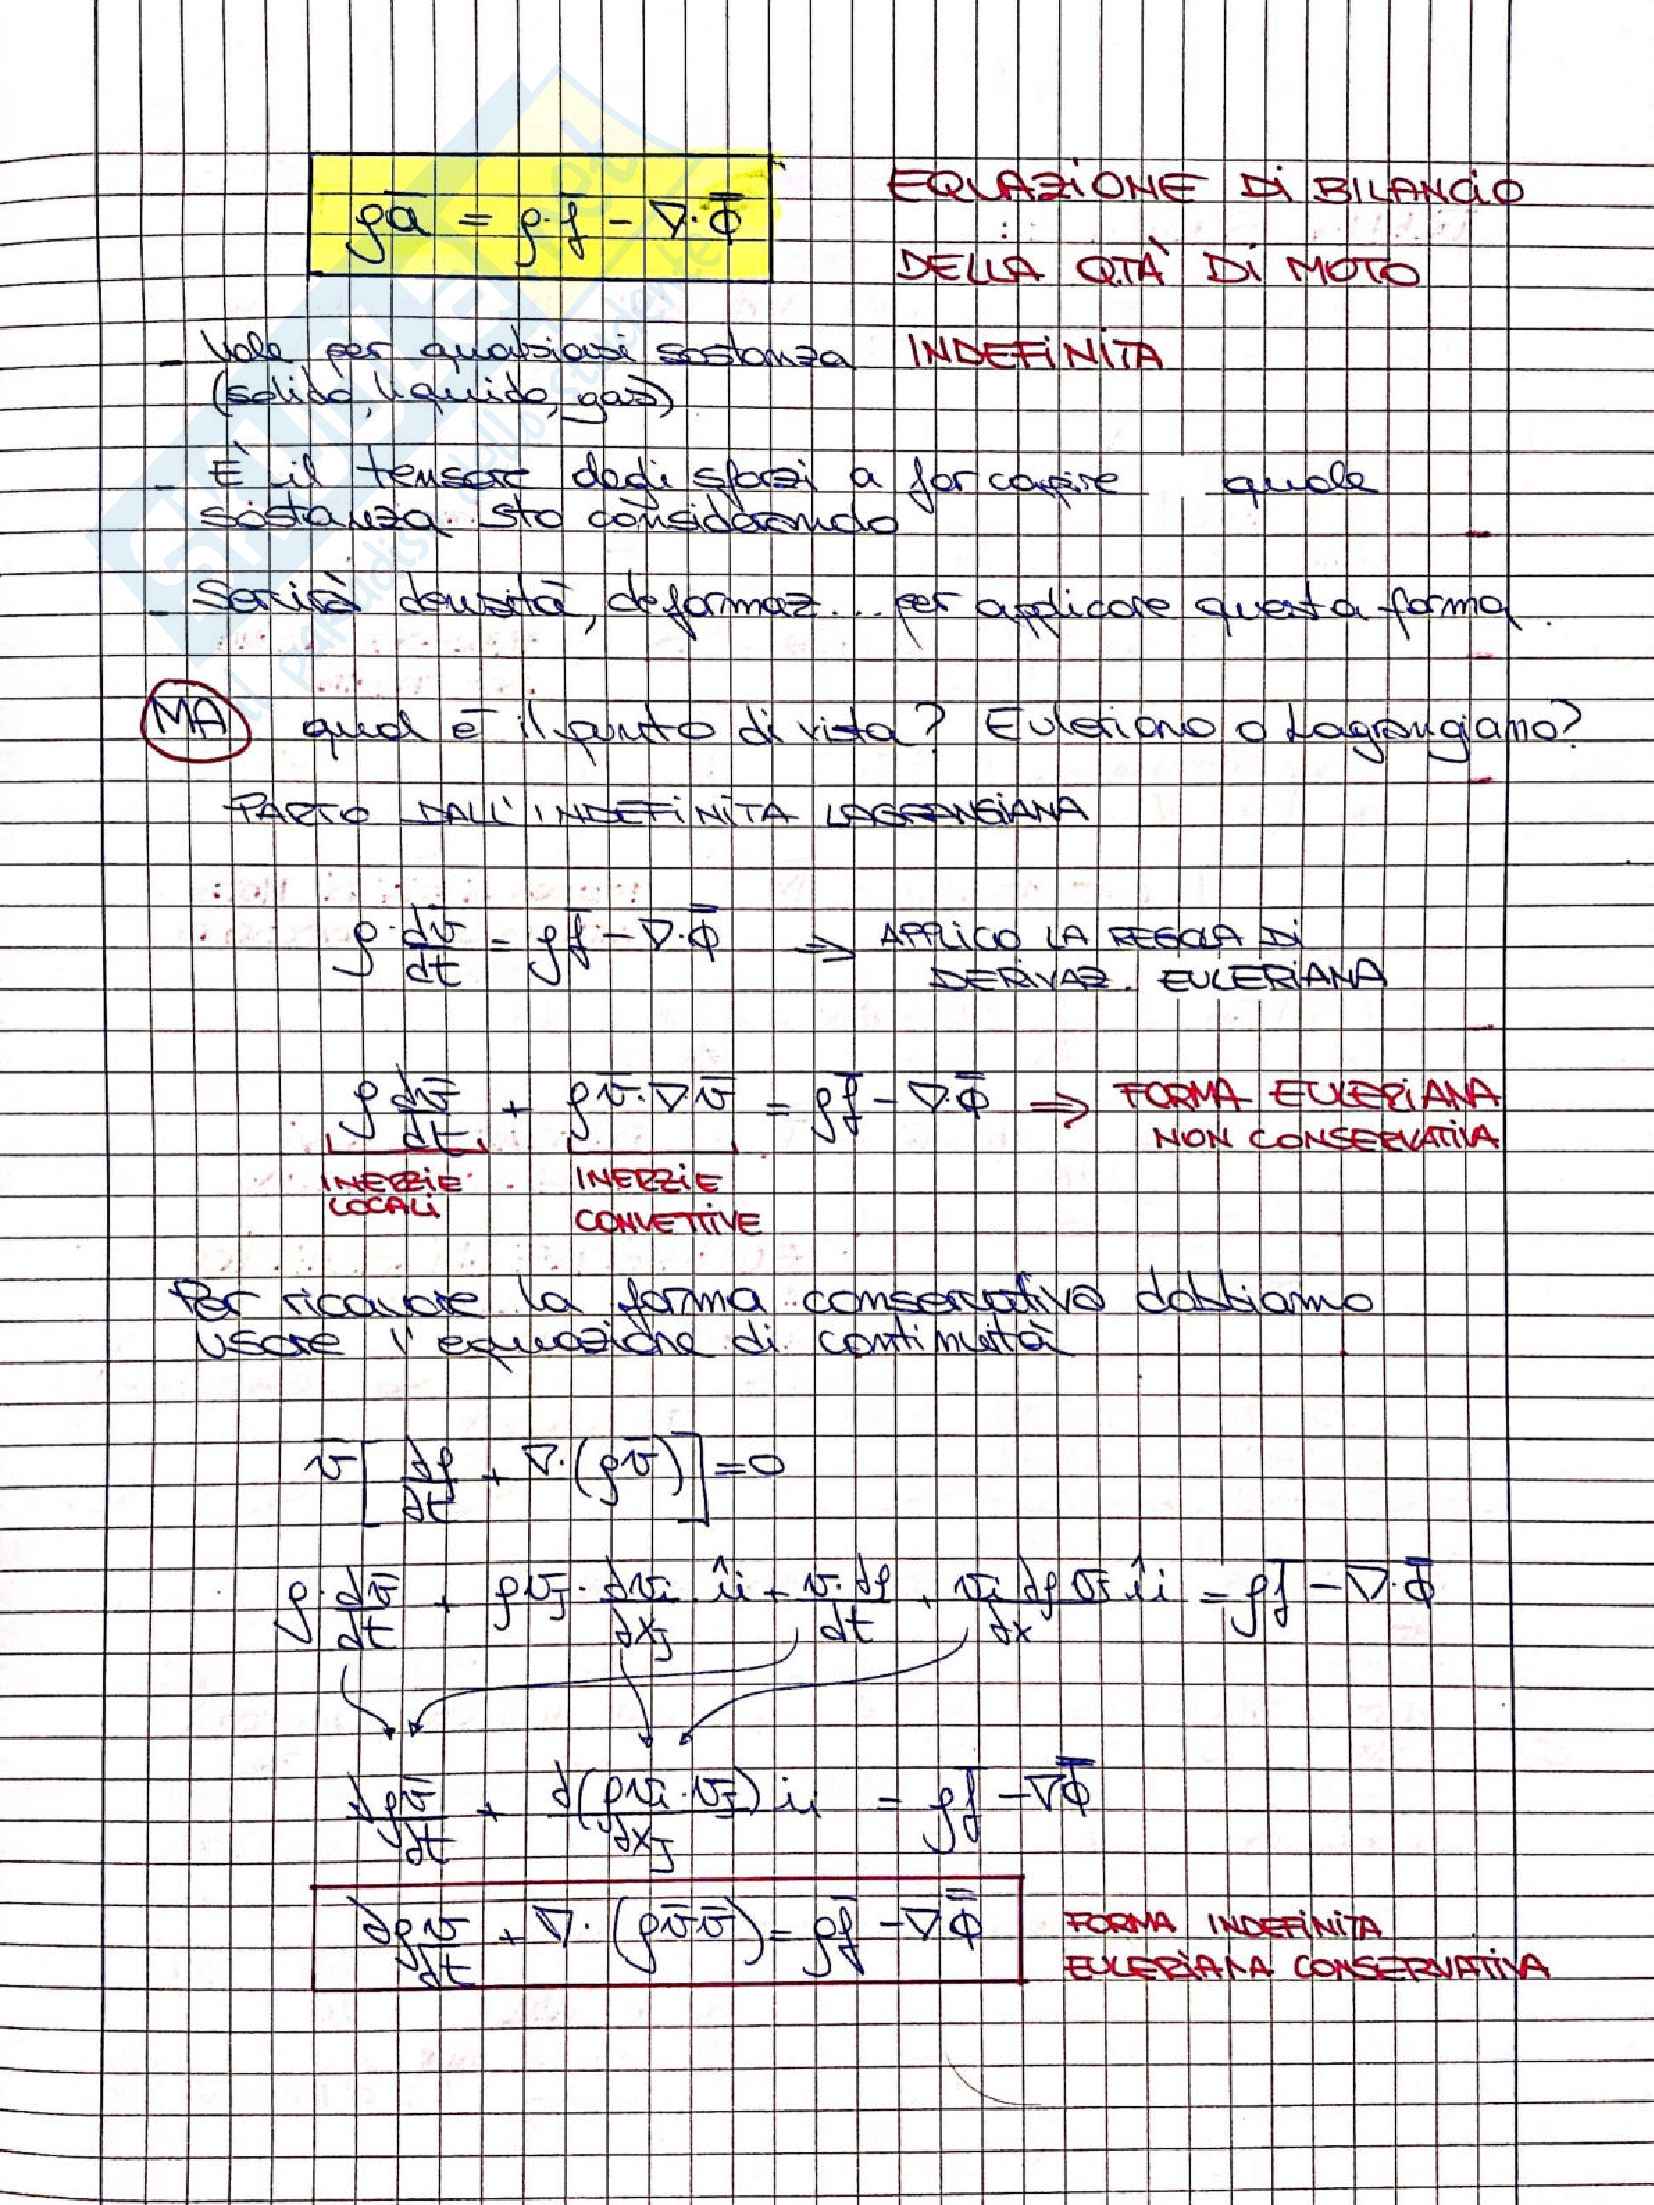 ρā = ρ·f̄ - ∇·Φ̿
EQUAZIONE DI BILANCIO
DELLA Q.TÀ DI MOTO
INDEFINITA
- Vale per qualsiasi sostanza
(solido, liquido, gas)
- È il tensore degli sforzi a far capire quale
sostanza sto considerando
- Servirà densità, deformaz... per applicare questa forma
MA qual è il punto di vista? Euleriano o Lagrangiano?
PARTO DALL'INDEFINITA LAGRANGIANA
ρ·dv̄/dt = ρf̄ - ∇·Φ̿ ⇒ APPLICO LA REGOLA DI
DERIVAZ. EULERIANA
ρ ∂v̄/∂t + ρv̄·∇v̄ = ρf̄ - ∇·Φ̿ ⇒ FORMA EULERIANA
NON CONSERVATIVA
INERZIE LOCALI
INERZIE CONVETTIVE
Per ricavare la forma conservativa dobbiamo
usare l'equazione di continuità
v̄ [∂ρ/∂t + ∇·(ρv̄)] = 0
ρ·∂v̄/∂t + ρvj·∂vi/∂xj îi + v·∂ρ/∂t + vi ∂ρvj/∂x îi = ρf̄ - ∇·Φ̿
∂ρv̄/∂t + ∂(ρvi·vj)/∂xj ii = ρf̄ - ∇Φ̿
∂ρv̄/∂t + ∇·(ρv̄v̄) = ρf̄ - ∇Φ̿
FORMA INDEFINITA
EULERIANA CONSERVATIVA